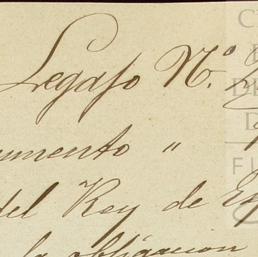 Legajo N.º 2
umento "
del Rey de Esp
la obligacion